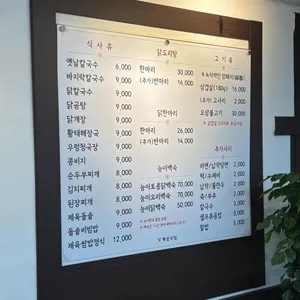 식사류
옛날칼국수 6,000
바지락칼국수 9,000
닭칼국수 9,000
닭곰탕 9,000
닭개장 9,000
황태해장국 9,000
우렁청국장 9,000
콩비지 9,000
순두부찌개 8,000
김치찌개 8,000
된장찌개 8,000
제육돌솥 9,000
돌솥비빔밥 9,000
제육쌈밥정식 12,000
닭도리탕
한마리 30,000
(추가)반마리 16,000
닭한마리
한마리 26,000
(추가)반마리 14,000
능이백숙
능이토종닭백숙 70,000
능이오리백숙 70,000
능이닭백숙 50,000
고기류
삼겹살(180g) 16,000
(추가) 고사리 2,000
추가사리
라면/납작당면 2,000
떡/수제비 2,000
만두 2,000
칼국수 2,000
셀프볶음밥 3,000
찰밥 5,000